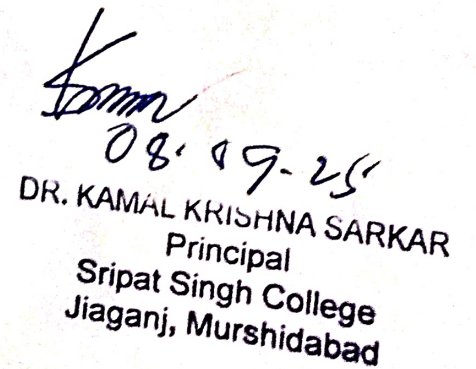 08.09-25
DR. KAMAL KRISHNA SARKAR
Principal
Sripat Singh College
Jiaganj, Murshidabad